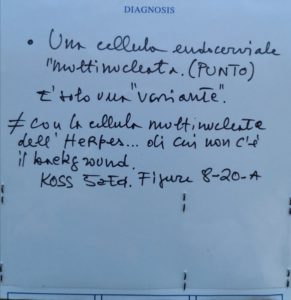 DIAGNOSIS
• Una cellula endocerviale
"multinucleata. (PUNTO)
E' solo una "variante".
≠ con la cellula multinucleata
dell' Herpes... di cui non c'è
il background.
KOSS 5a Ed. Figure 8-20-A